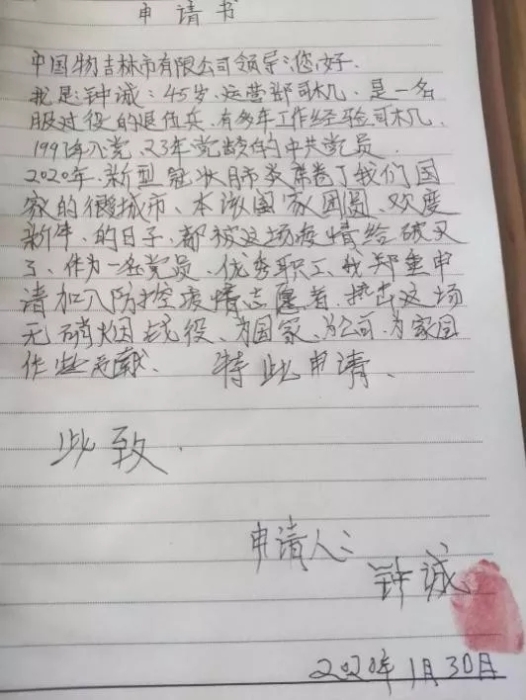 申请书
中国物吉林市有限公司领导:您好.
我是:钟诚:45岁.运营部司机.是一名
服过役的退伍兵、有多年工作经验司机.
1997年入党、23年党龄的中共党员.
2020年.新型冠状肺炎席卷了我们国
家的很城市、本该阖家团圆、欢度
新年.的日子.都被这场疫情给破灭
了、作为一名党员、优秀职工、我郑重申
请加入防控疫情志愿者.抗击这场
无硝烟战役、为国家、为公司.为家园
作些贡献、 特此申请、
此致.
申请人:
钟诚
2020年1月30日